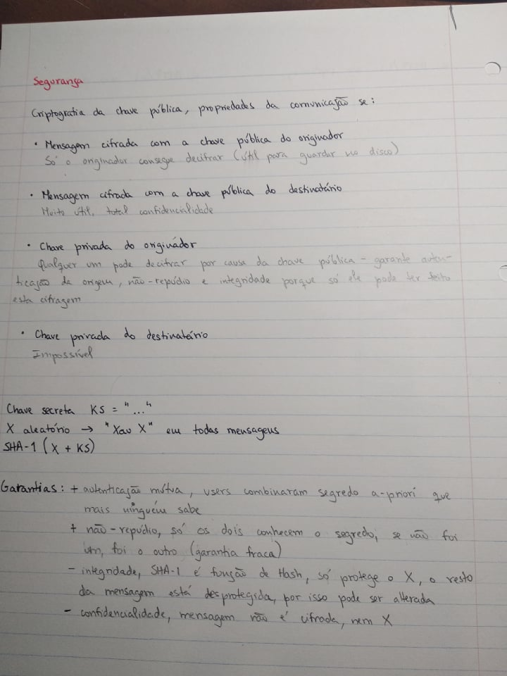 Segurança
Criptografia da chave pública, propriedades da comunicação se:
• Mensagem cifrada com a chave pública do originador
Só o originador consegue decifrar (útil para guardar no disco)
• Mensagem cifrada com a chave pública do destinatário
Muito útil, total confidencialidade
• Chave privada do originador
Qualquer um pode decifrar por causa da chave pública - garante auten-
ticação de origem, não-repúdio e integridade porque só ele pode ter feito
esta cifragem
• Chave privada do destinatário
Impossível
Chave secreta KS = "..."
X aleatório → "Xau X" em todas mensagens
SHA-1 (X + KS)
Garantias: + autenticação mútua, users combinaram segredo a-priori que
mais ninguém sabe
+ não-repúdio, só os dois conhecem o segredo, se não foi
um, foi o outro (garantia fraca)
- integridade, SHA-1 é função de Hash, só protege o X, o resto
da mensagem está desprotegida, por isso pode ser alterada
- confidencialidade, mensagem não é cifrada, nem X